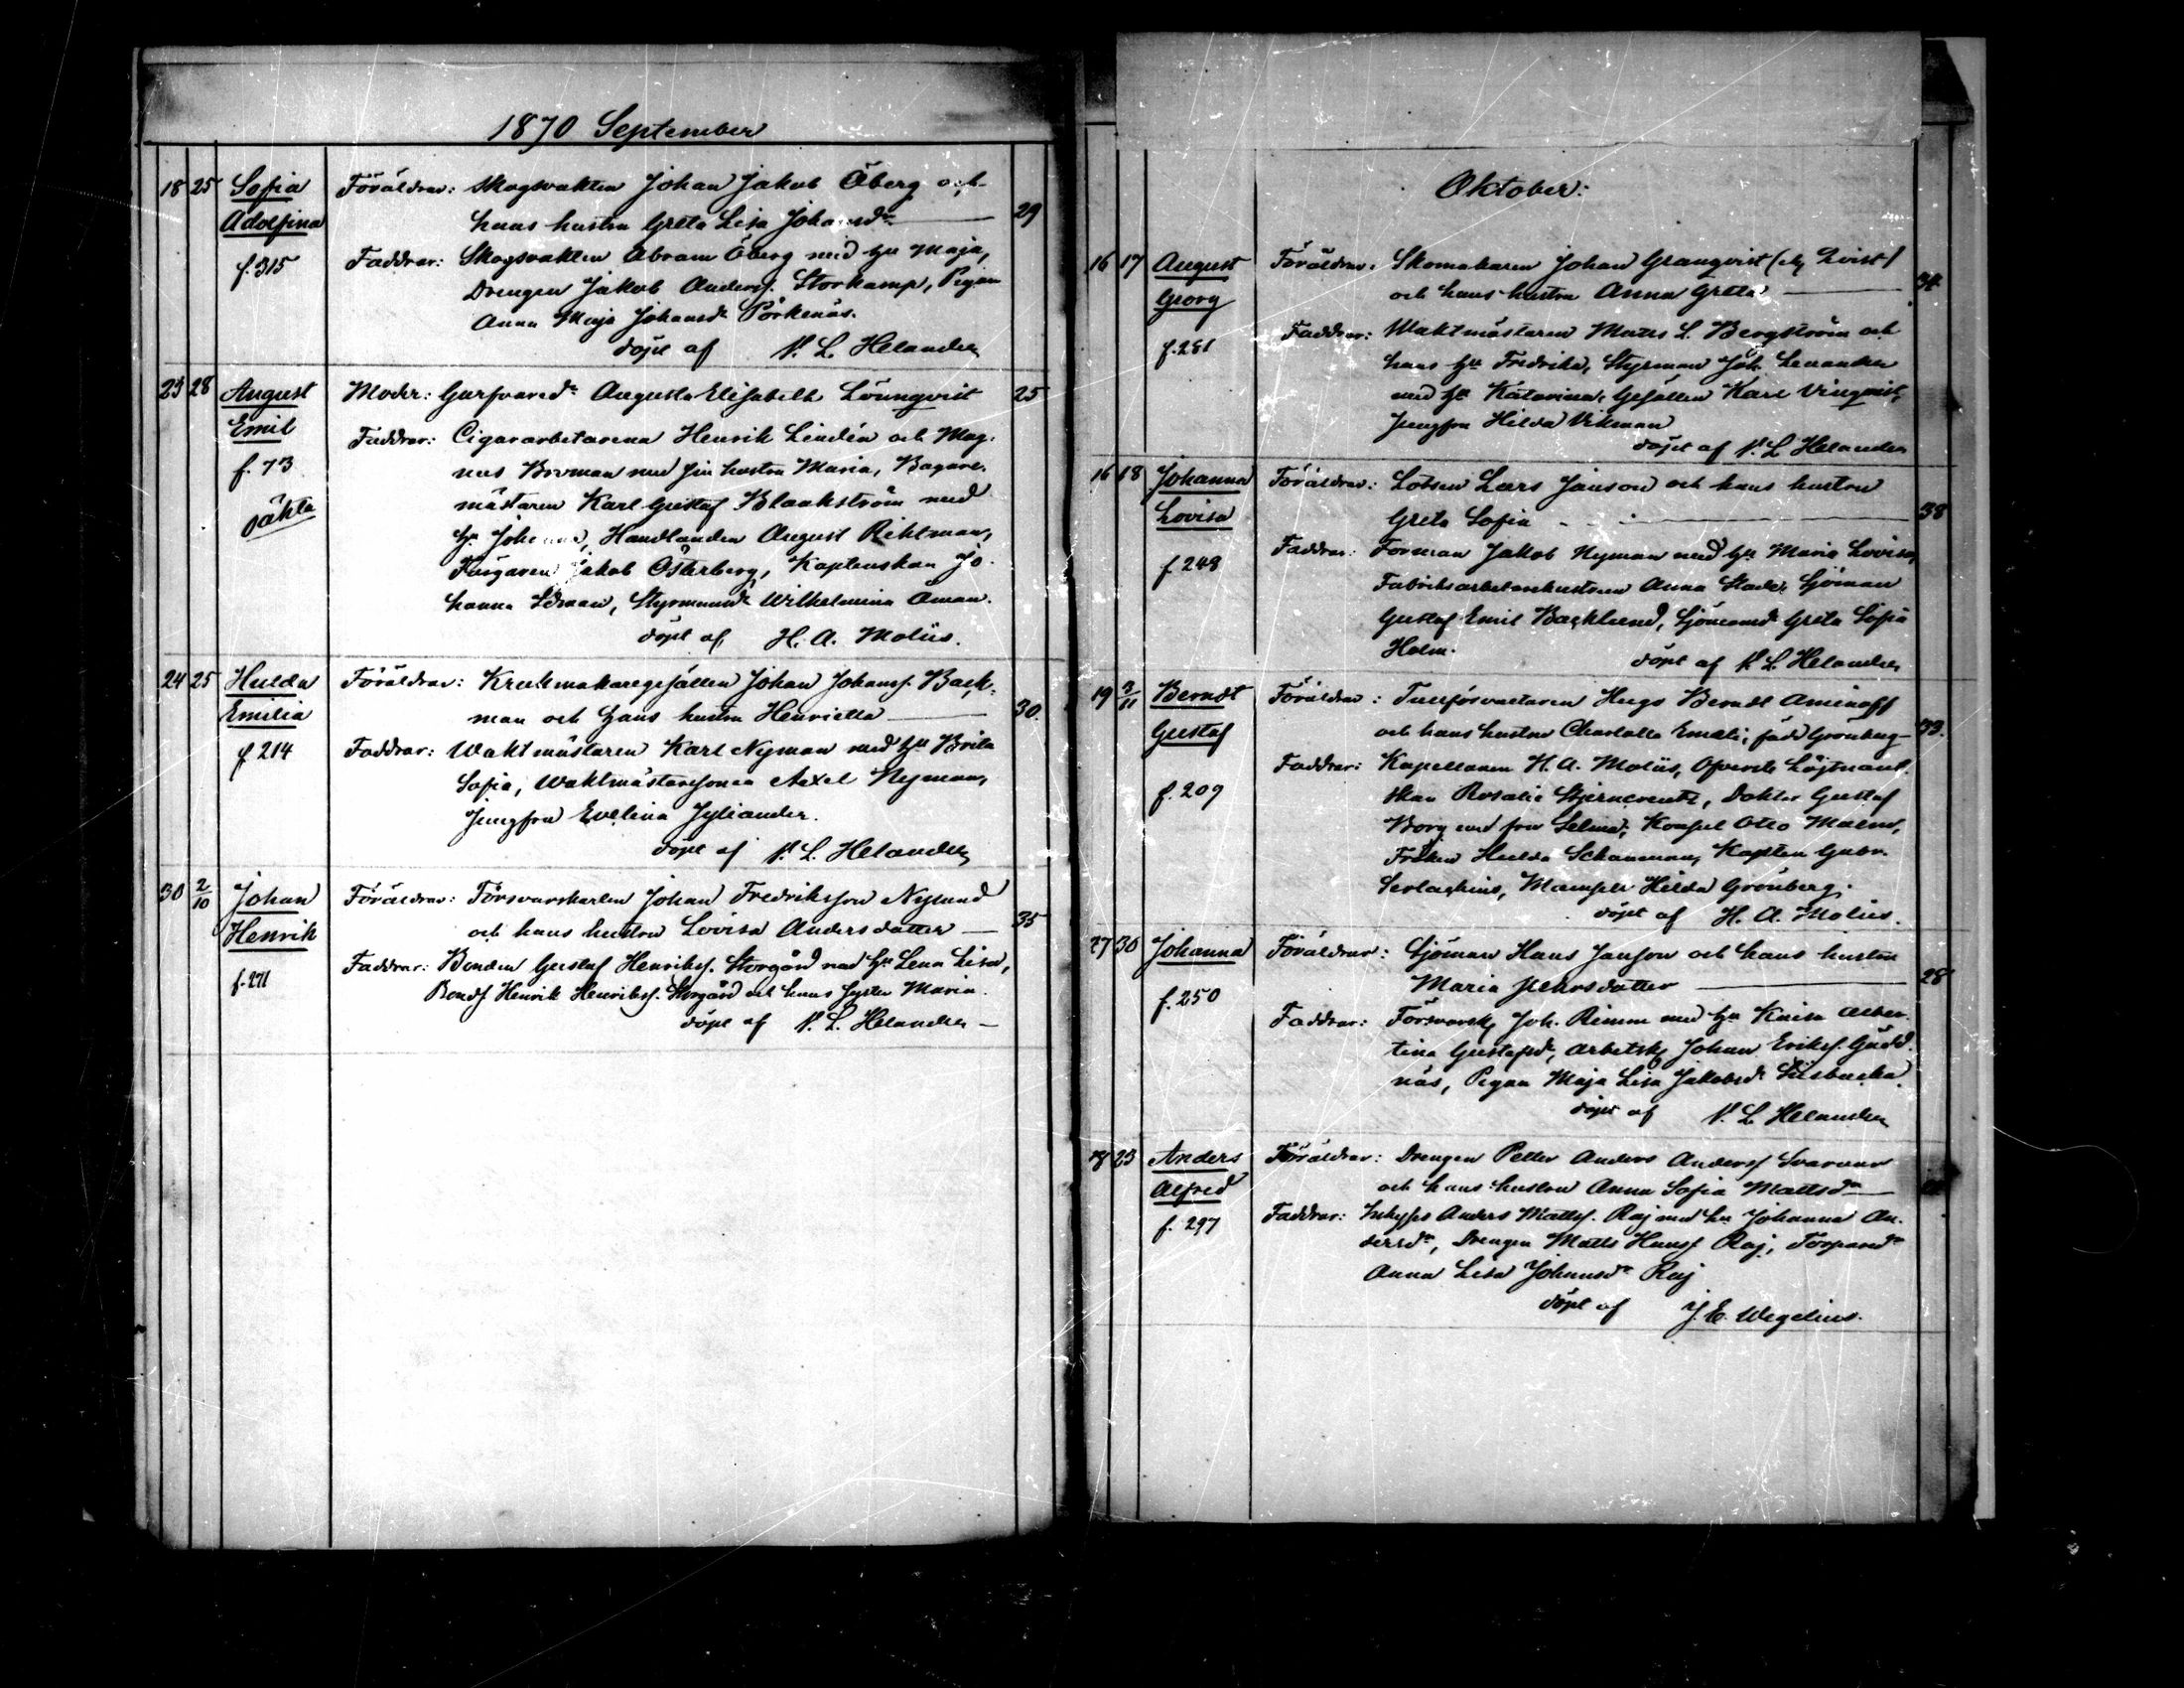 1870 September
18 25 Sofia Föräldrar: Skogsvakten Johan Jakob Öberg och
Adolfina hans hustru Greta Lisa Johansdr 29
f. 315 Faddrar: Skogsvakten Abram Öberg med hu Maja,
Drengen Jakob Anderss. Storkamp, Pigan
Anna Maja Johansdr Pörkenäs.
döpt af N. L. Helander
23 28 August Moder: Garfvaredr Augusta Elisabeth Lönnqvist 25
Emil Faddrar: Cigararbetarena Henrik Lindén och Mag-
f. 73 nus Broman med sin hustru Maria, Bagare-
oäkta mästaren Karl Gustaf Blankström med
hu Johanna, Handlanden August Rihtman,
Färgaren Jakob Österberg, Kaptenskan Jo-
hanna Idman, Styrmansdr Wilhelmina Åman.
döpt af H. A. Molüs.
24 25 Hulda Föräldrar: Krukmakaregesällen Johan Johanss. Back-
Emilia man och hans hustru Henrietta 30.
f. 214 Faddrar: Waktmästaren Karl Nyman med hu Brita
Sofia, Waktmästaresonen Axel Nyman,
Jungfru Evelina Jyliander.
döpt af N. L. Helander
30 2/10 Johan Föräldrar: Försvarskarlen Johan Fredriksson Nylund
Henrik och hans hustru Lovisa Andersdotter 35
f. 271 Faddrar: Bonden Gustaf Henrikss. Storgård med hu Lena Lisa,
Bonds. Henrik Henrikss. Storgård och hans syster Maria.
döpt af N. L. Helander
Oktober:
16 17 August Föräldrar: Skomakaren Johan Granqvist (ej Qvist)
Georg och hans hustru Anna Greta 34.
f. 281 Faddrar: Waktmästaren Matts L. Bergström och
hans hu Fredrika, Styrman Joh. Lenander
med hu Katarina, Gesällen Karl Vinqvist,
Jungfru Hilda Vikman
döpt af N. L. Helander
16 18 Johanna Föräldrar: Lotsen Lars Janson och hans hustru
Lovisa Greta Sofia 38
f. 248 Faddrar: Forman Jakob Nyman med hu Maria Lovisa,
Fabriksarbetarehustrun Anna Slade, Sjöman
Gustaf Emil Backlund, Sjömansdr Greta Sofia
Holm. döpt af N. L. Helander
19 3/11 Berndt Föräldrar: Tullförvaltaren Hugo Berndt Aminoff
Gustaf och hans hustru Charlotta Emeli, född Grönberg 33.
f. 209 Faddrar: Kapellanen H. A. Molüs, Öfverste Löjtnant-
skan Rosalie Stjerncreutz, Doktor Gustaf
Borg med fru Selma, Konsul Otto Malm,
Fröken Hulda Schauman, Kapten Gabr.
Serlachius, Mamsell Hilda Grönberg.
döpt af H. A. Molüs.
27 30 Johanna Föräldrar: Sjöman Hans Janson och hans hustru
Maria Pehrsdotter 28
f. 250 Faddrar: Försvarsk. Joh. Rimm med hu Kaisa Alber-
tina Gustafsdr, Arbetsk. Johan Erikss. Gädd-
näs, Pigan Maja Lisa Jakobsdr Lillbacka.
döpt af N. L. Helander
18 23 Anders Föräldrar: Drengen Petter Anders Anderss. Svarvar
Alfred och hans hustru Anna Sofia Mattsdr
f. 297 Faddrar: Inhyses Anders Mattss. Raj med hu Johanna An-
dersdr, Drengen Matts Hanss. Raj, Torparedr
Anna Lisa Johansdr Raj
döpt af J. E. Wegelius.